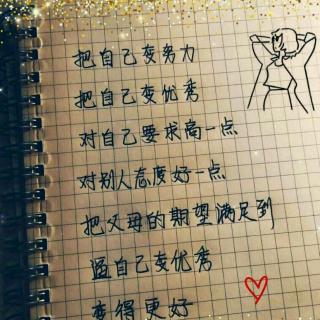 把自己变努力
把自己变优秀
对自己要求高一点
对别人态度好一点
把父母的期望满足到
逼自己变优秀
变得更好